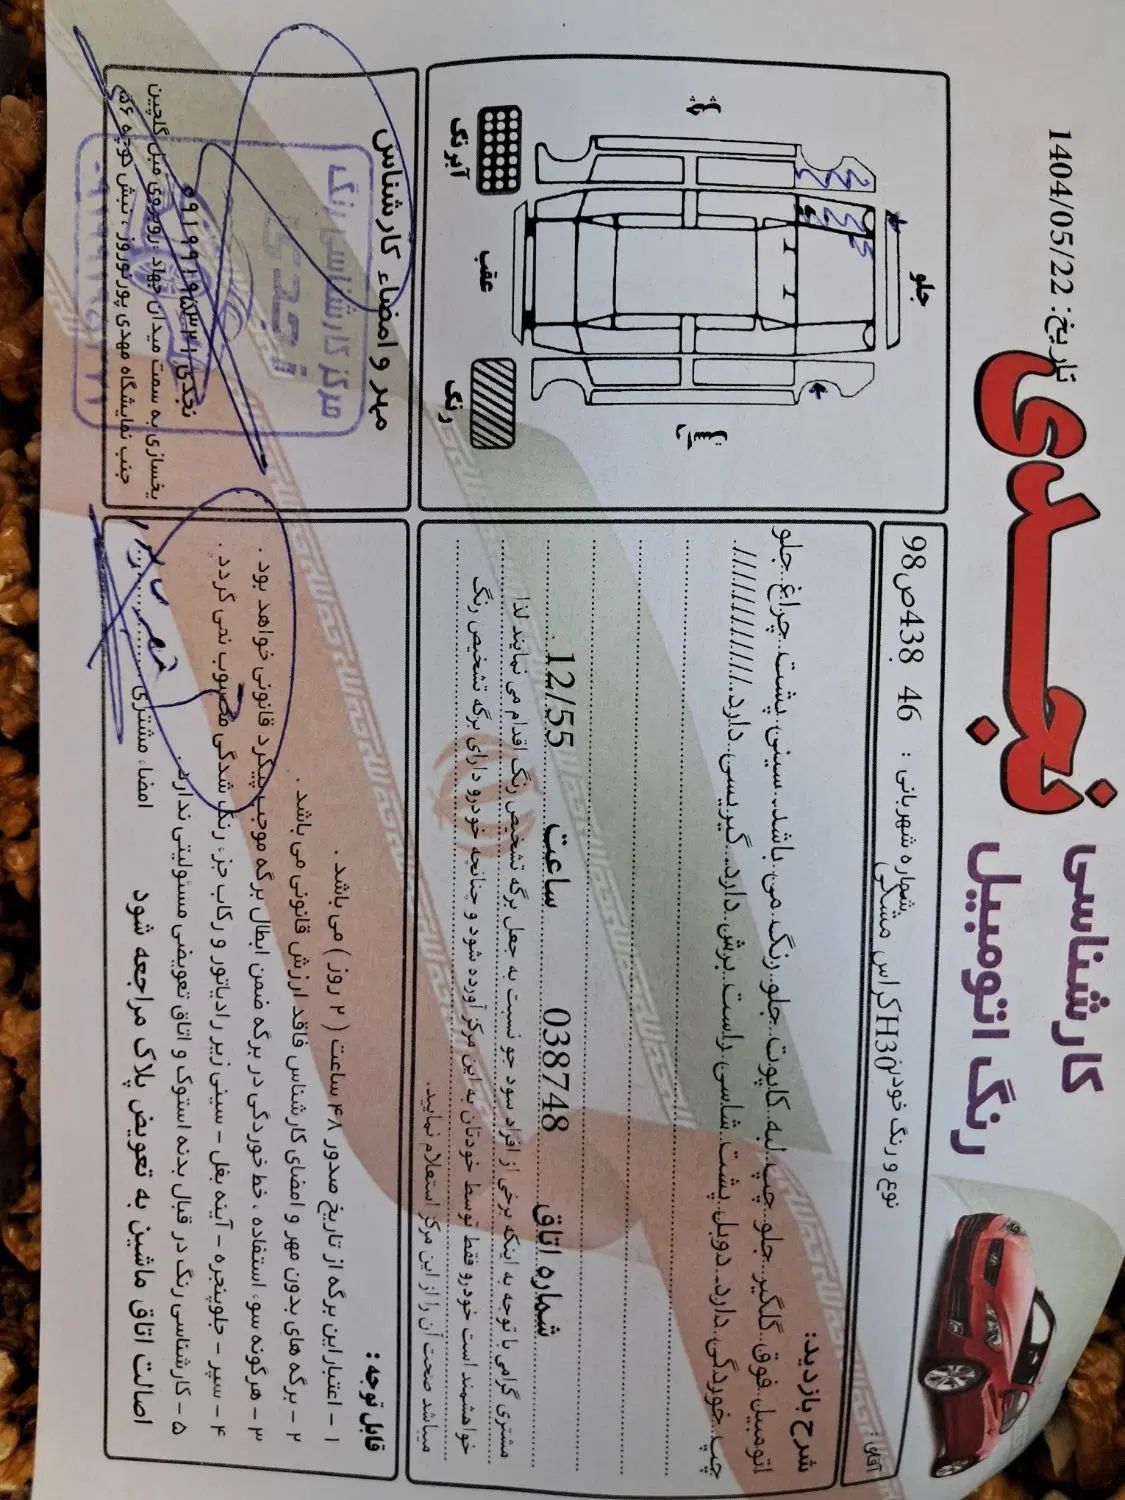 کارشناسی
رنگ اتومبیل
نجدی
تاریخ: 1404/05/22
آقای:
نوع و رنگ خودرو: H30کراس مشکی
شماره شهربانی : 46 438ص98
شرح بازدید:
اتومبیل فوق گلگیر جلو چپ لبه کاپوت جلو رنگ می باشد. سینی پشت چراغ جلو
چپ خوردگی دارد. دوبل پشت شاسی راست برش دارد. گیریسی دارد.///////////////
شماره اتاق 038748 ساعت 12/55
مشتری گرامی با توجه به اینکه برخی از افراد سود جو نسبت به جعل برگه تشخیص رنگ اقدام می نمایند لذا
خواهشمند است خودرو فقط توسط خودتان به این مرکز آورده شود و چنانچه خودرو دارای برگه تشخیص رنگ
میباشد صحت آن را از این مرکز استعلام نمایید.
جلو
عقب
چپ
راست
آبرنگ
رنگ
قابل توجه :
۱ - اعتبار این برگه از تاریخ صدور ۴۸ ساعت ( ۲ روز ) می باشد .
۲ - برگه های بدون مهر و امضای کارشناس فاقد ارزش قانونی می باشد .
۳ - هرگونه سوء استفاده ، خط خوردگی در برگه ضمن ابطال برگه موجب پیگرد قانونی خواهد بود .
۴ - سپر - جلوپنجره - آینه بغل - سینی زیر رادیاتور و رکاب جزء رنگ شدگی محسوب نمی گردد .
۵ - کارشناسی رنگ در قبال بدنه استوک و اتاق تعویضی مسئولیتی ندارد.
اصالت اتاق ماشین به تعویض پلاک مراجعه شود
امضاء مشتری
مهر و امضاء کارشناس
مرکز کارشناسی رنگ
نجدی
نجدی ۰۹۱۹۹۱۹۵۳۳۱
یخسازی به سمت میدان جهاد روبروی مبل گلچین
جنب نمایشگاه مهدی پورنوروز ، نبش کوچه ۵۶